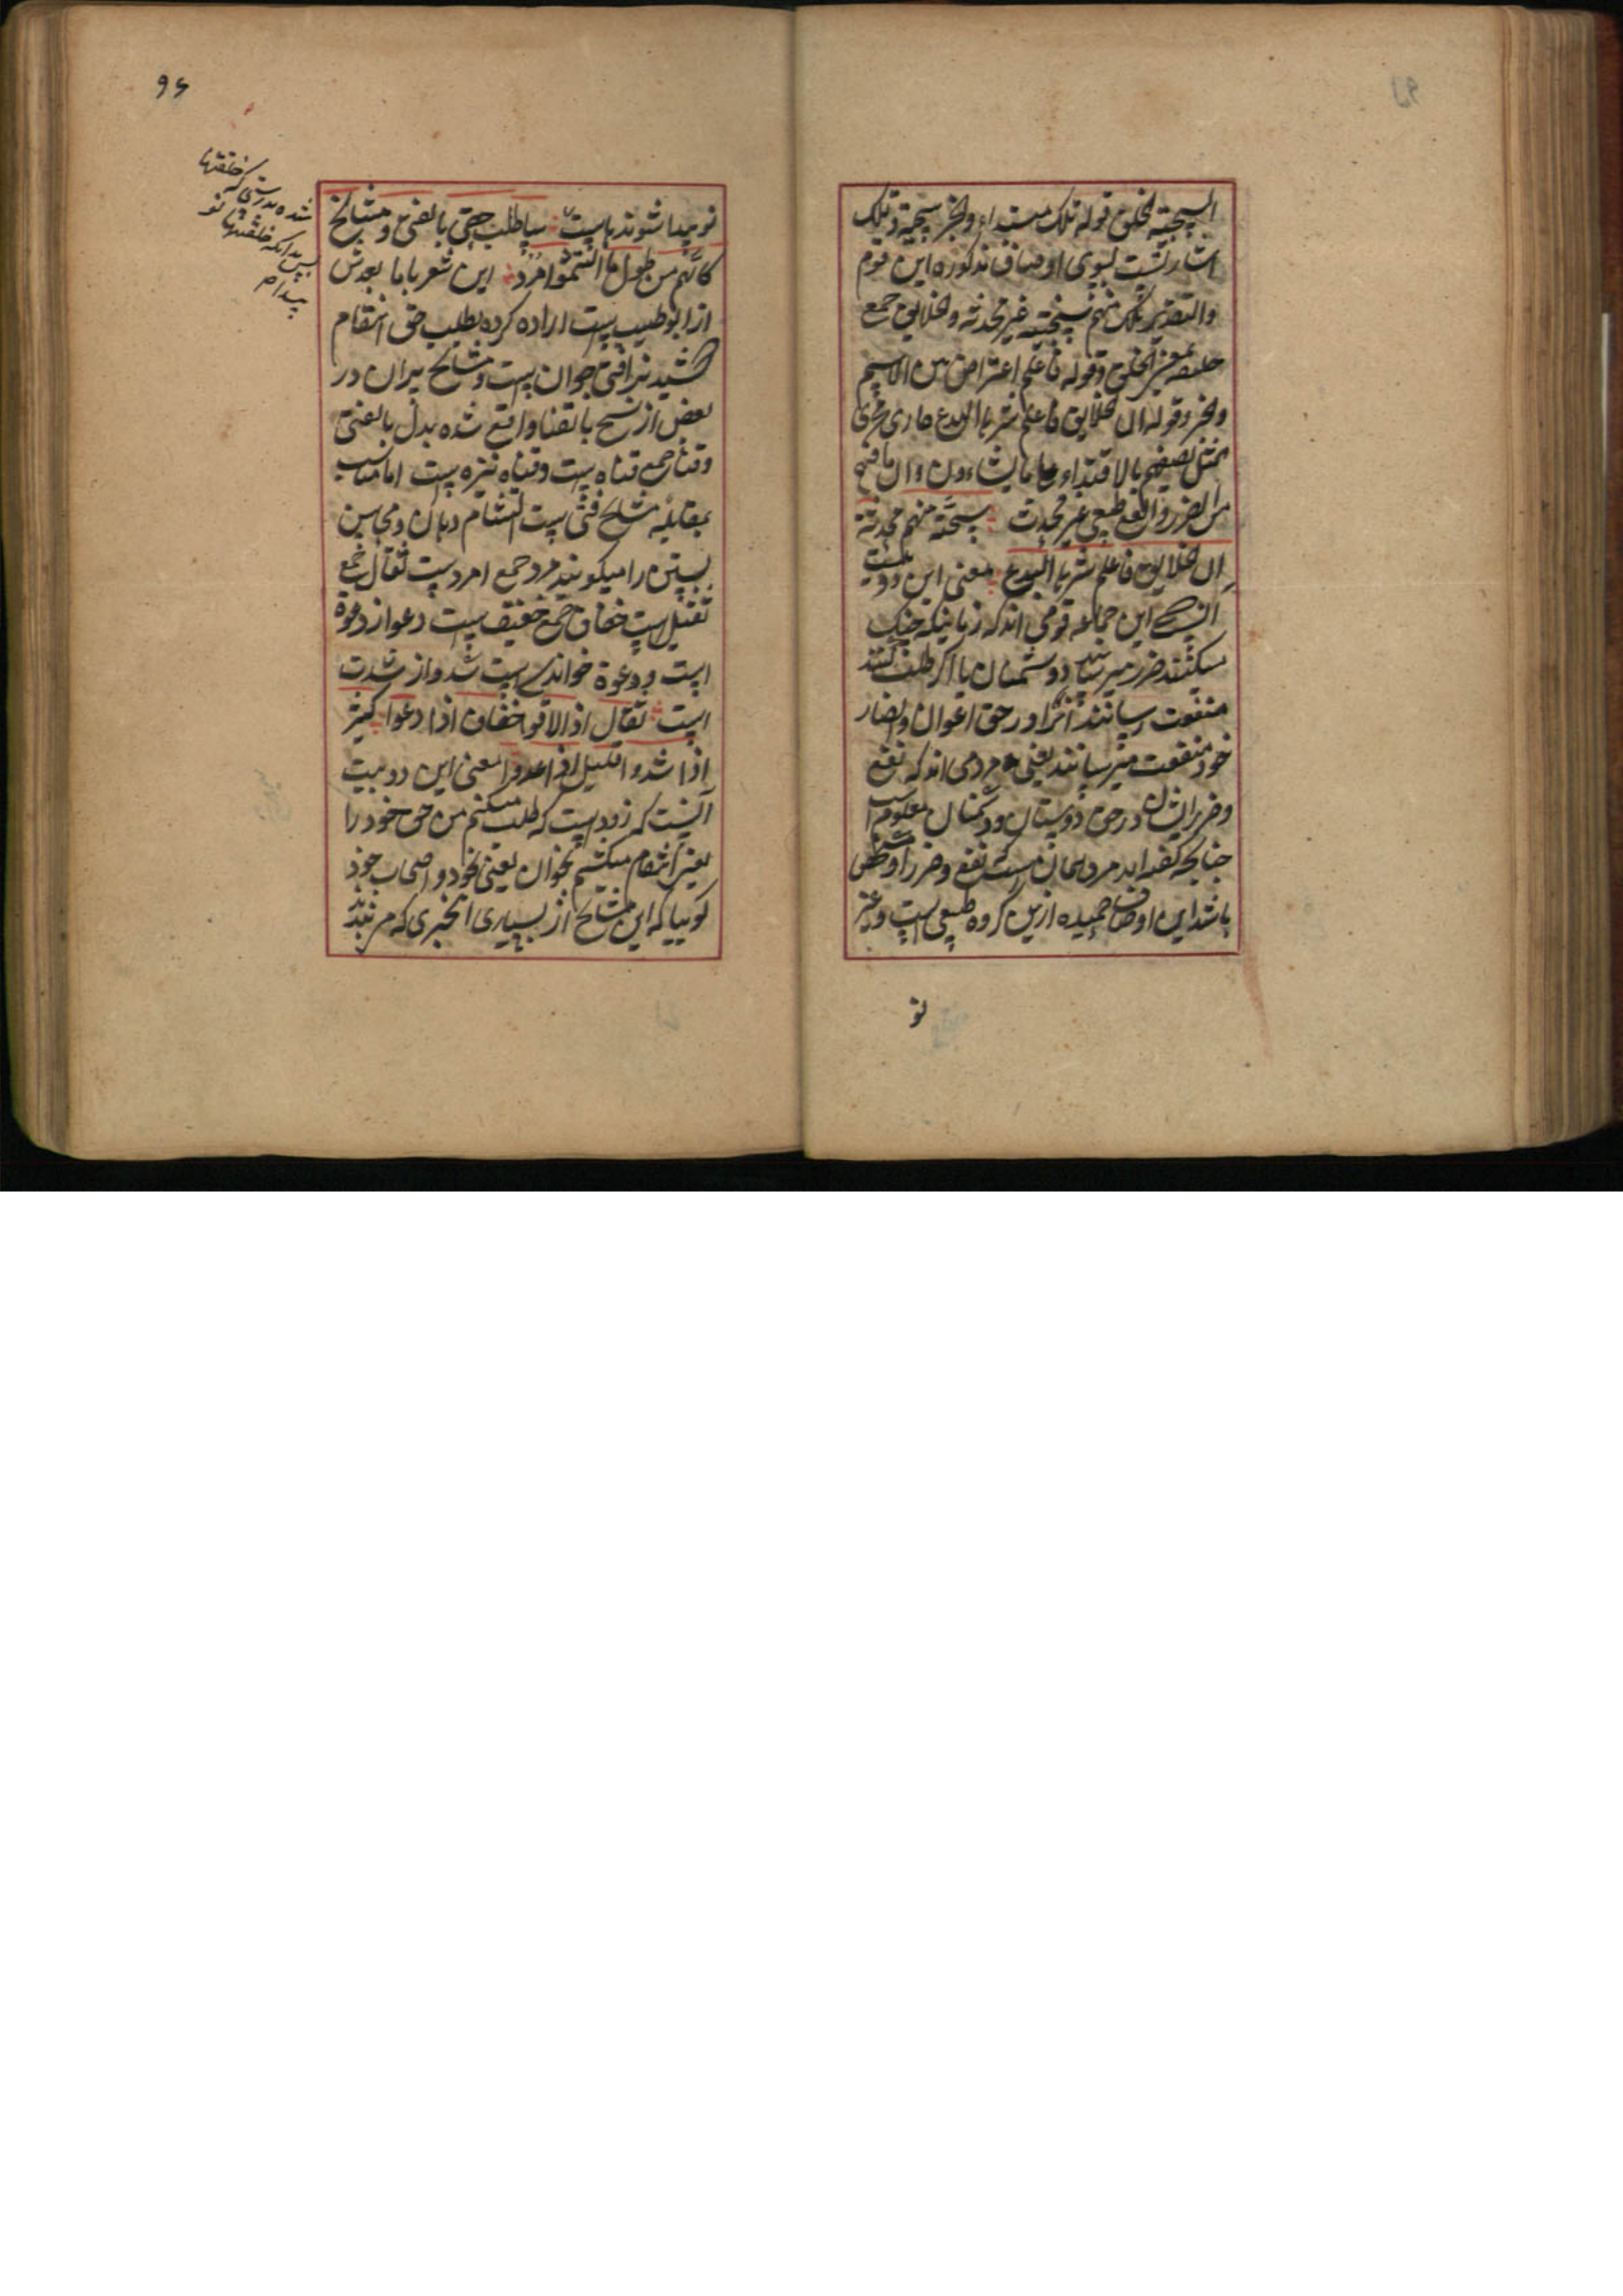 السجیة الخلق قوله تلک مبتداء والخبر سجیة وتلک
اشارتست بسوی اوصاف مذکوره این قوم
والتقدیر تلک منهم سجیة غیر محدثه والخلایق جمع
خلیقه بمعنی الخلق وقوله فاعلم اعتراض بین الاسم
والخبر وقوله ان الخلایق فاعلم شرها البدع جاری مجری
من الضرر والنفع طبعی غیر محدث سجیة منهم محدثة
ان الخلایق فاعلم شرها البدع معنی این دو بیت
آنست این جماعه قومی اند که زمانیکه جنک
میکنند ضرر میرسانند دوشمنان یا اکر طلب کنند
منفعت رسانند آنرا در حق اعوان وانصار
خود منفعت میرسانند یعنی مردمی اند که نفع
وضرر ایشان در حق دوستان ودشمنان معلوم است
چنانچه کفته اند مرد همان است نفع وضرر
باشد این اوصاف حمیده ازین کروه طبعی است وغیر
نو
96
نو پیدا شوندهاست ساطلب حقی بالفتی ومشایخ
کانهم من طول ما التثموا مرد این شعر باما بعدش
از ابو طیب است اراده کرده بطلب حق انتقام
کشیدنرا فتی جوان است ومشایخ پیران در
بعض از نسخ بالقنا واقع شده بدل بالفتی
وقنا جمع قناه است وقناه نیزه است اما مناسب
بمقابله مشایخ فتی است التثام دهان ومحاسن
بستن را میکویند مرد جمع امرد است ثقال جمع
ثقیل است خفاف جمع خفیف است دعوا از دعوة
است ودعوة خواندن است شدوا از شدت
است ثقال اذا لاقوا خفاف اذا دعوا کثیر
اذا شدوا قلیل اذا عدوا معنی این دو بیت
آنست که زود است که طلب میکنم من حق خود را
یعنی انتقام میکشم بجوان یعنی بخود واصحاب خود
کوییا که این مشایخ از بسیاری
خلقتها
شده بدرستی که
بدانکه خلقتها نو